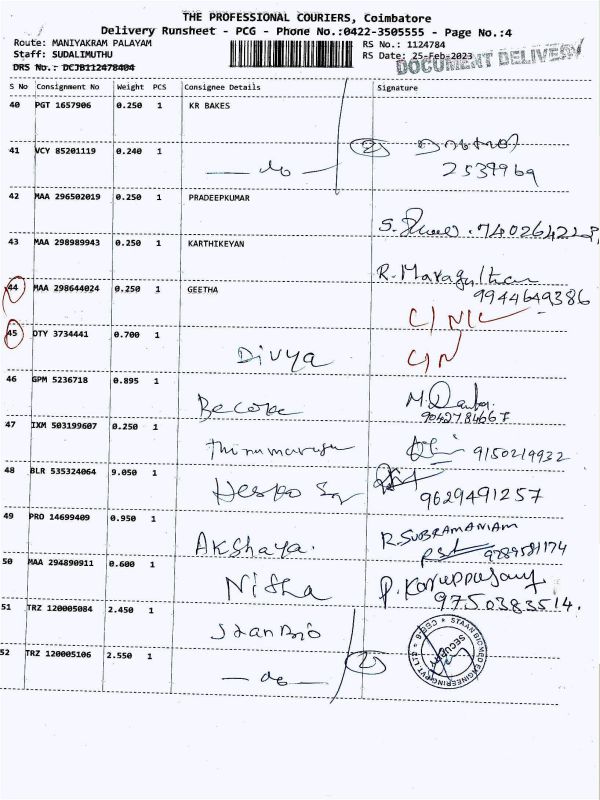 THE PROFESSIONAL COURIERS, Coimbatore
Delivery Runsheet - PCG - Phone No.:0422-3505555 - Page No.:4
Route: MANIYAKRAM PALAYAM RS No.: 1124784
Staff: SUDALIMUTHU RS Date: 25-Feb-2023
DRS No.: DCJB112478404 DOCUMENT DELIVERY
S No Consignment No Weight PCS Consignee Details Signature
40 PGT 1657906 0.250 1 KR BAKES
41 VCY 85201119 0.240 1 — do — 2 2539969
42 MAA 296502019 0.250 1 PRADEEPKUMAR
S. 7402642218,
43 MAA 298989943 0.250 1 KARTHIKEYAN
R. 9944649386
44 MAA 298644024 0.250 1 GEETHA
45 DTY 3734441 0.700 1 Divya
46 GPM 5236718 0.895 1 M. 9042784667
47 IXM 503199607 0.250 1 9150219932
48 BLR 535324064 9.050 1 9629491257
49 PRO 14699409 0.950 1 Akshaya. R. SUBRAMANIAM 9789581174
50 MAA 294890911 0.600 1 Nisha P. 9750383514.
51 TRZ 120005084 2.450 1
52 TRZ 120005106 2.550 1 — do — 2
SECURITY